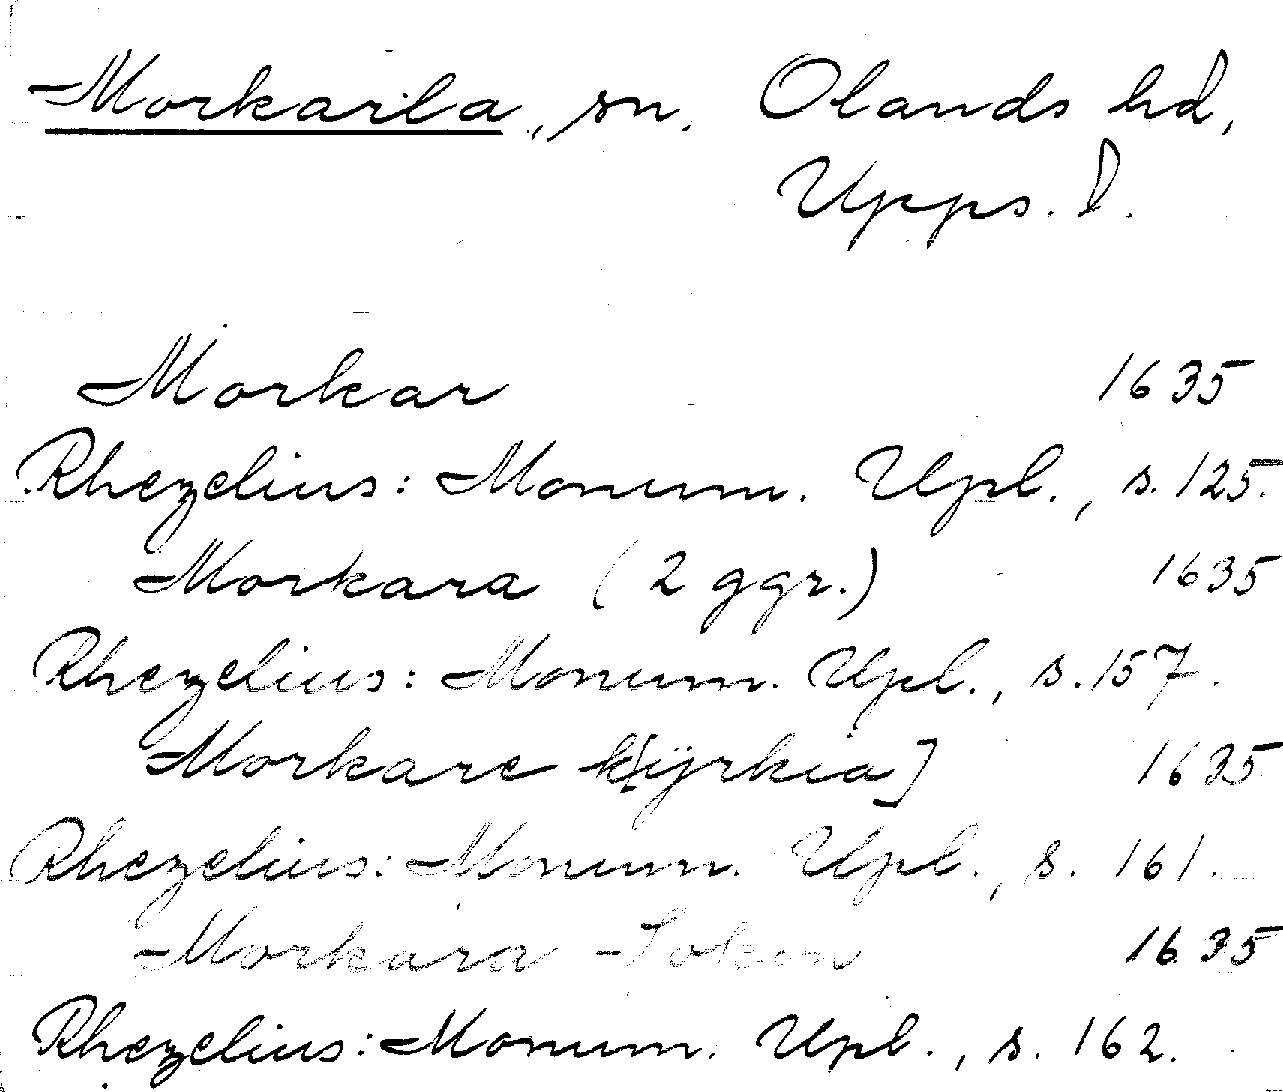 Morkarla, sn. Olands hd,
Upps. l.
Morkar 1635
Rhezelius: Monum. Upl., s. 125.
Morkara (2 ggr.) 1635
Rhezelius: Monum. Upl., s. 157.
Morkare k[ÿrkia] 1635
Rhezelius: Monum. Upl., s. 161.
Morkara Sokn 1635
Rhezelius: Monum. Upl., s. 162.